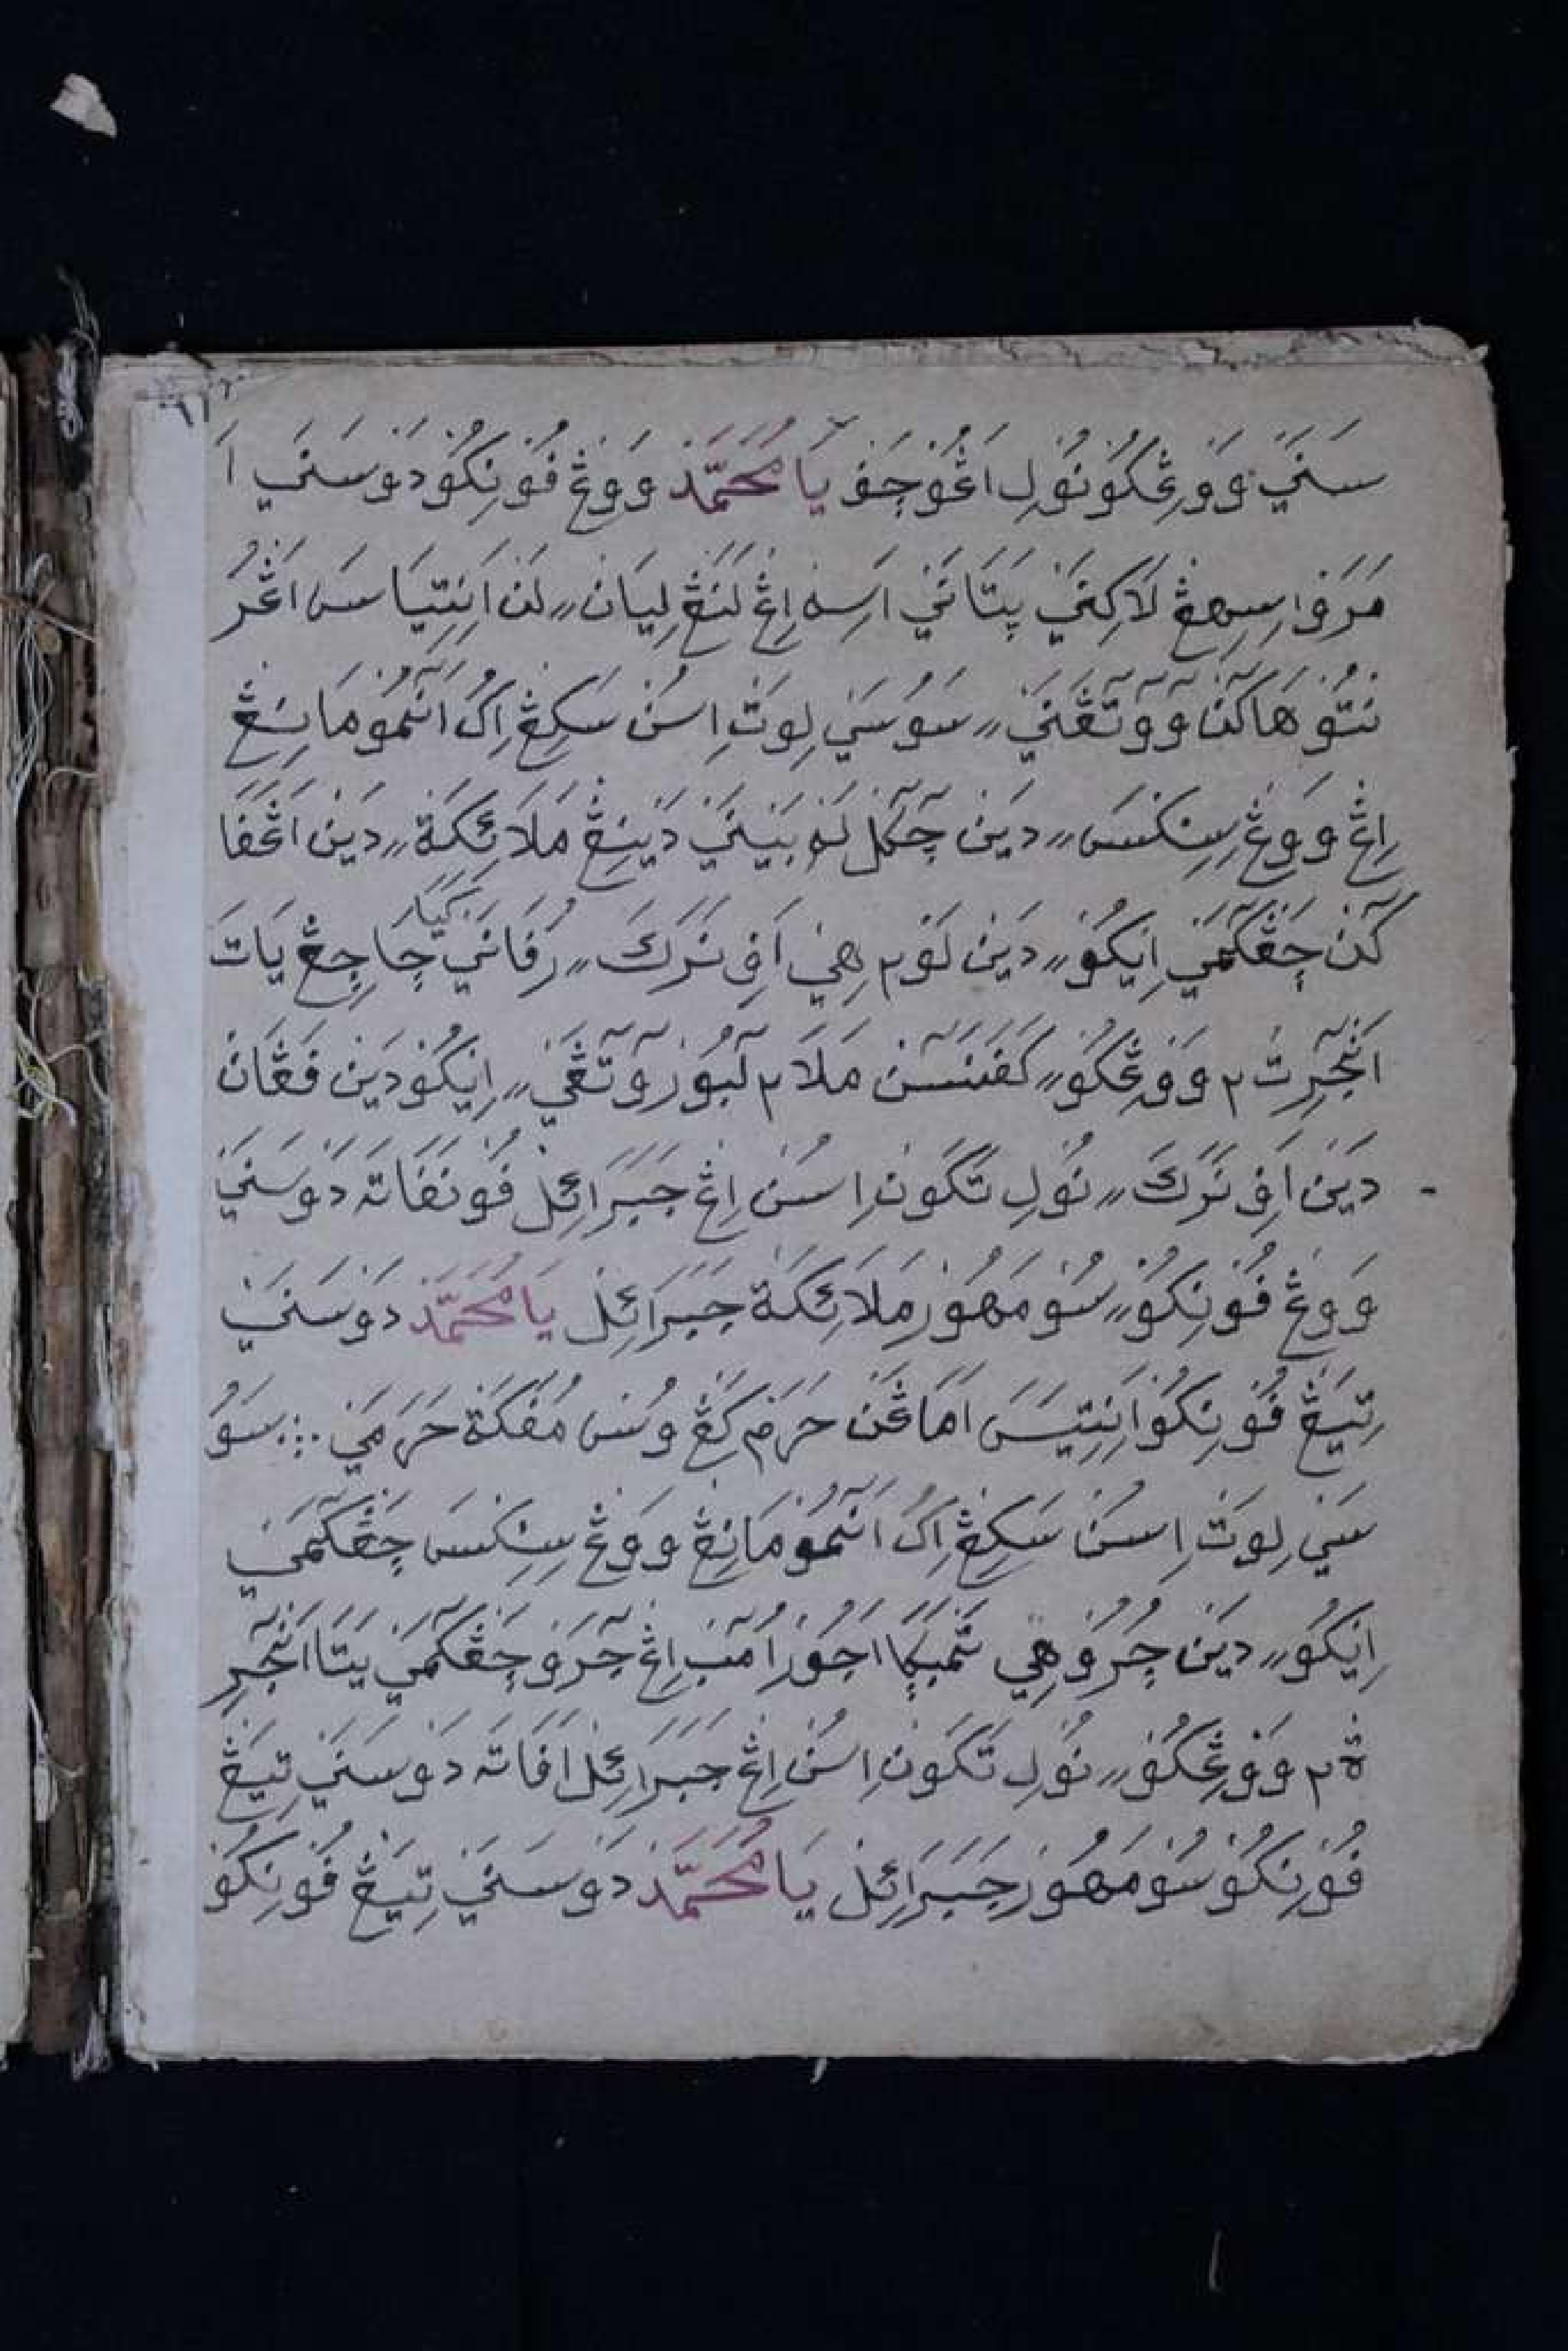 سَنَيْ وَوڠْكُوْنُوْلِ اَڠُوْجَفْ يَا مُحَمَّدْ وَوڠْ فُوْنِكُوْ دَوْسَنَيْ اَ
مَرَفْ اِسِهڠْ لَاكِنَيْ بِتَانَيْ اَسِهْ اِڠْ لَنڠْ لِيَانْ ٫٫ لَنْ اَنِتِيَاسَ اَڠْرُ
نتُوْهَاكٓنْ وَوٓتٓڠَنَيْ ٫٫ سَوُسَيْ لِوَتْ اِسُنْ سَكِڠْ اِكُ اَنٓمُوْ مَانِڠْ
اِڠْ وَوڠْ سِنِكْسَ ٫٫ دَيْنْ چٓكٓلْ لَهْ بَيْنَيْ دَيْنِڠْ مَلَائِكَةْ ٫٫ دَيْنْ اَڠْفَا
كٓنْ چَڠْكٓمَيْ اِيْكُوْ ٫٫ دَيْنْ لَوْم هِيْ اَفِ نَرَكَ ٫٫ رُفَانَيْ كَيَا چَاچِڠْ يَاتَ
اَنْجٓرِتْ ٢ وَوڠْكُوْ ٫٫ كَفَنَسٓنْ مَلَام لٓبُوْرْ وٓتٓڠَيْ ٫٫ اِيْكُوْ دَيْنْ فَڠَانْ
دَيْنْ اَفِ نَرَكَ ٫٫ نُوْلِ تَكَوْنْ اِسُنْ اِڠْ جَبَرَائِلْ فُوْنَفَاتَهْ دَوْسَنَيْ
وَوڠْ فُوْنِكُوْ ٫٫ سُوْمَهُوْرْ مَلَائِكَةْ جَبَرَائِلْ يَا مُحَمَّدْ دَوْسَنَيْ
تِيَڠْ فُوْنِكُوْ اَنِتِيَسَ اَمَاڠَنْ حَرَمْ كڠْ وُسْ مُفَكَةْ حَرَمَيْ ؞ سَوُ
سَيْ لِوَتْ اِسُنْ سَكِڠْ اِكُ اَنٓمُوْ مَانِڠْ وَوڠْ سِنِكْسَ چَڠْكٓمَيْ
اِيْكُوْ ٫٫ دَيْنْ چُرُوْ هِيْ تٓمْبَكَا اَجُوْرْ اُمٓبْ اِڠْ جٓرَوْ چَڠْكٓمَيْ يَتَا اَنْجٓرِ
ةْ ٢ وَوڠْكُوْ ٫٫ نُوْلِ تَكَوْنْ اِسُنْ اِڠْ جَبَرَائِلْ اَفَاتَهْ دَوْسَنَيْ تِيَڠْ
فُوْنِكُوْ سُوْمَهُوْرْ جَبَرَائِلْ يَا مُحَمَّدْ دَوْسَنَيْ تِيَڠْ فُوْنِكُوْ